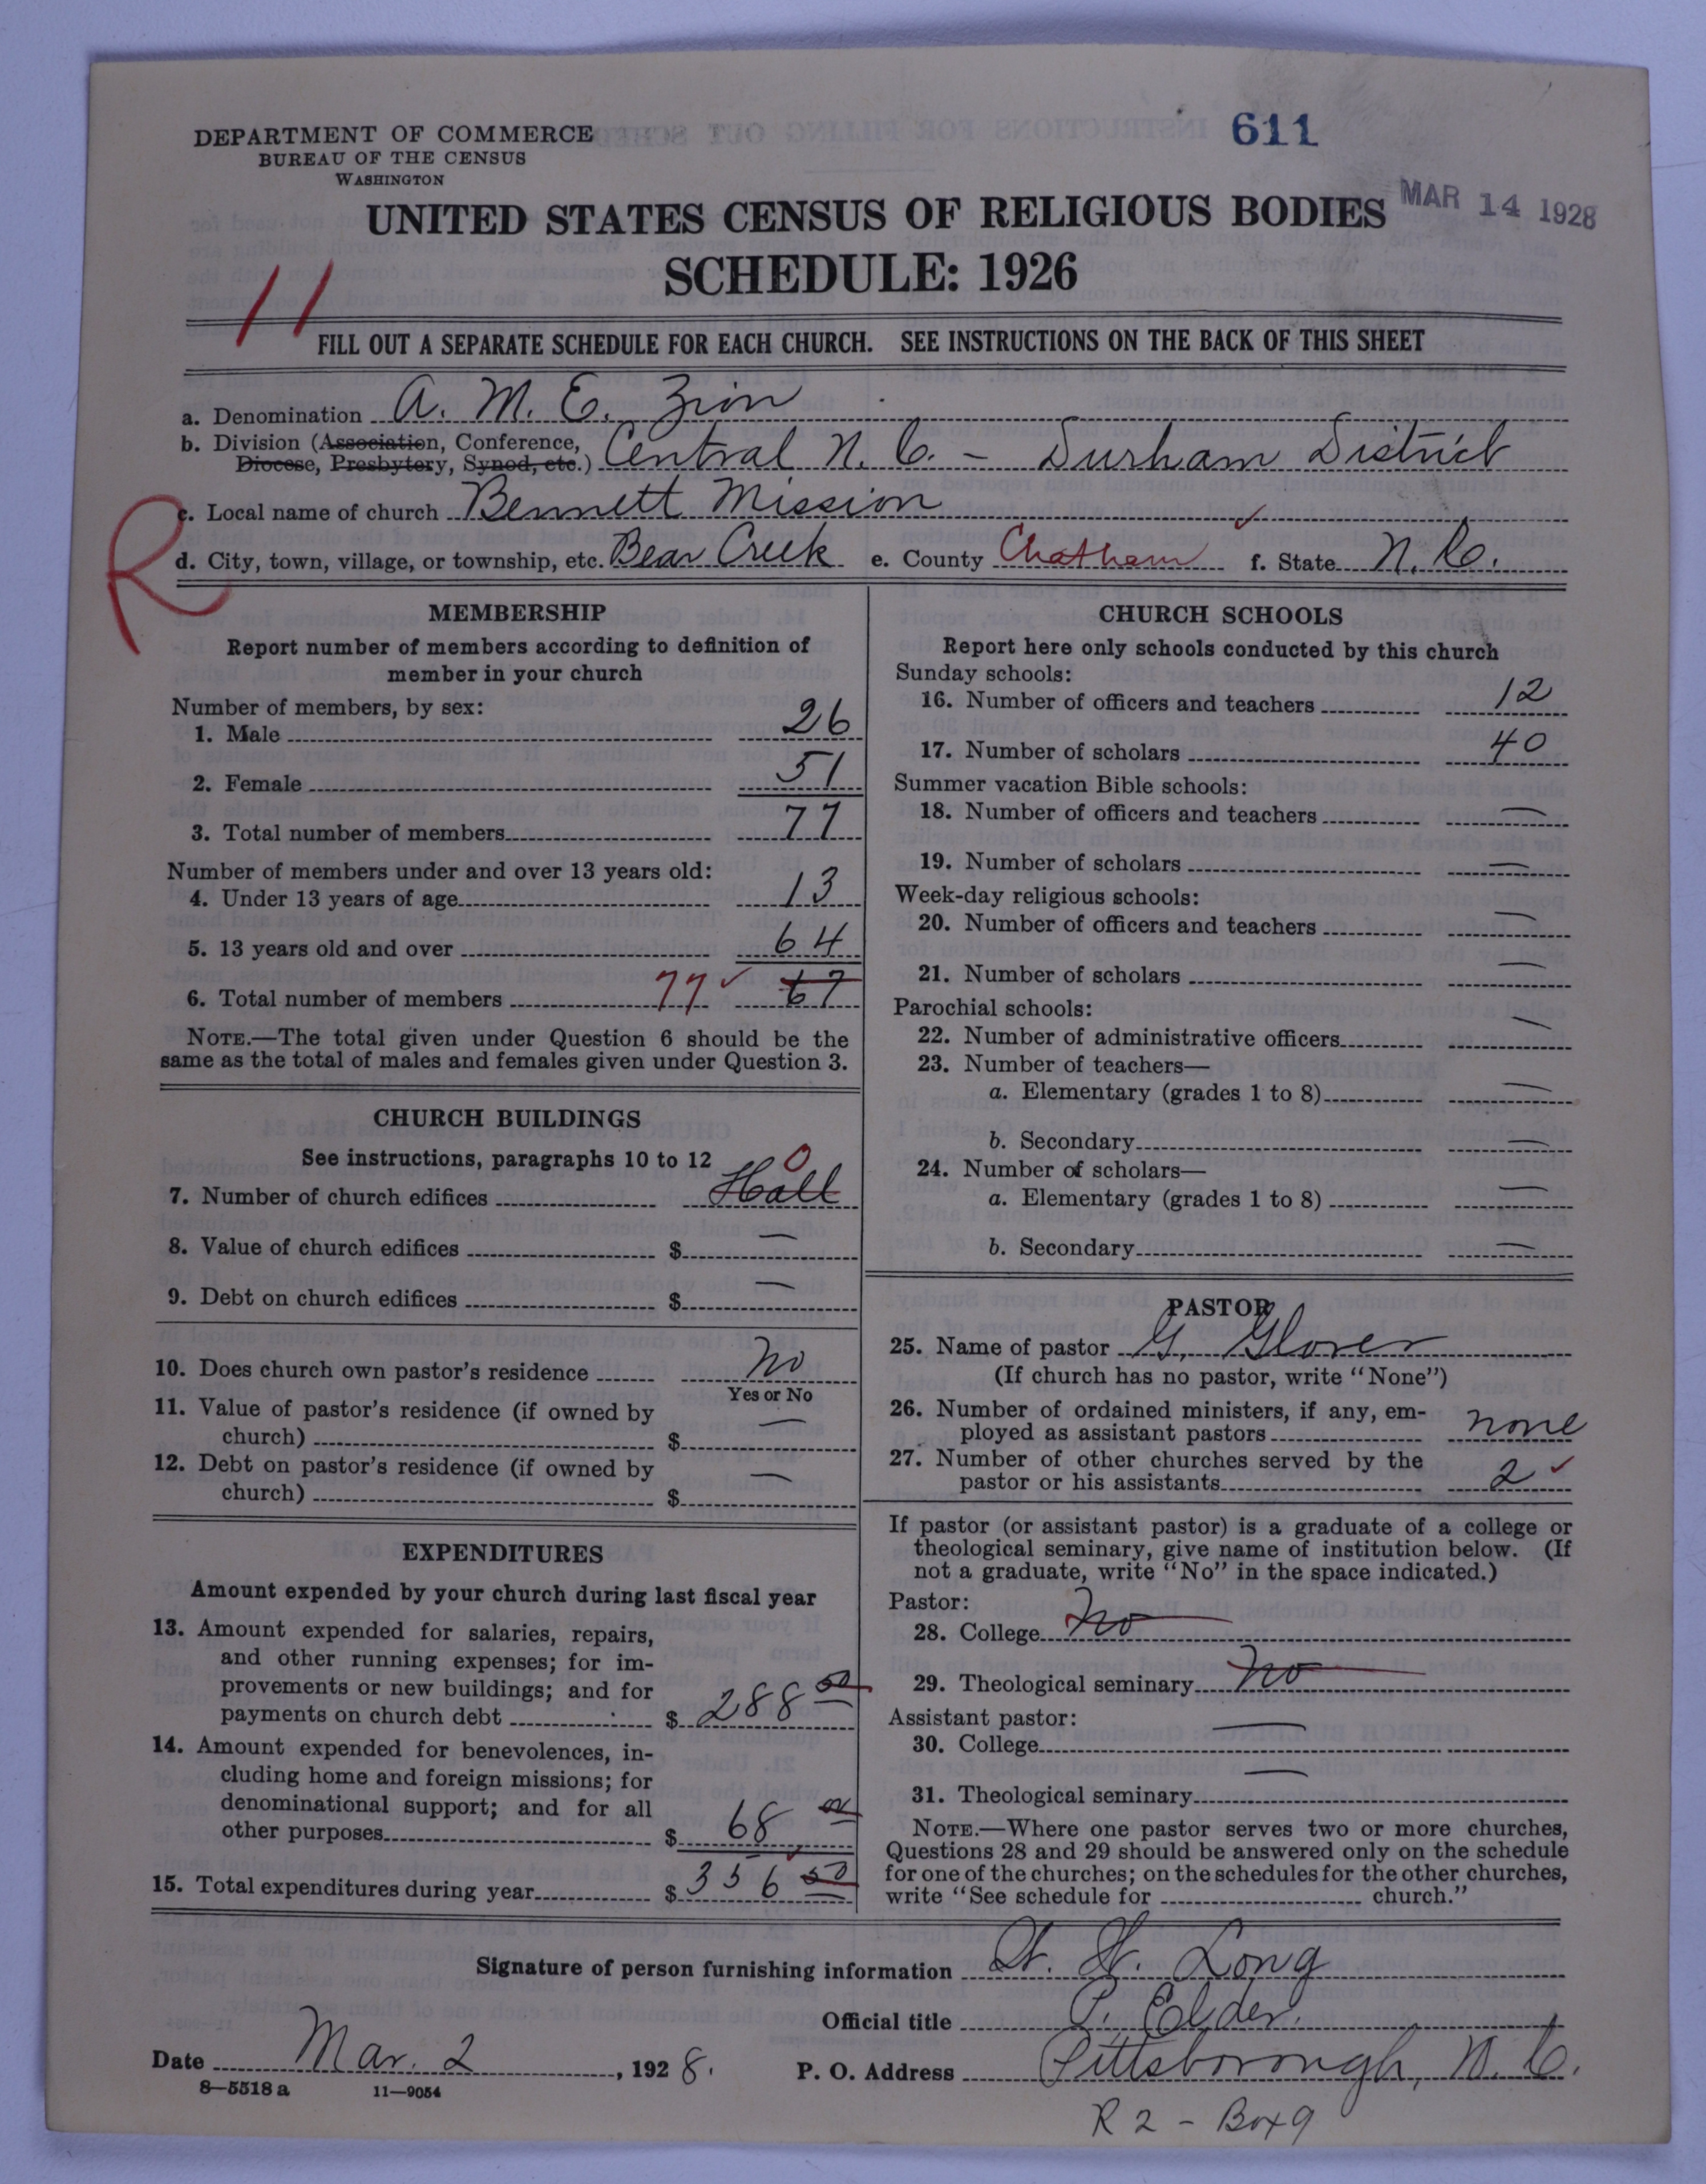 611
DEPARTMENT OF COMMERCE
BUREAU OF THE CENSUS
WASHINGTON
MAR 14 1928
UNITED STATES CENSUS OF RELIGIOUS BODIES
SCHEDULE: 1926
11
FILL OUT A SEPARATE SCHEDULE FOR EACH CHURCH. SEE INSTRUCTIONS ON THE BACK OF THIS SHEET
a. Denomination A. M. E. Zion
b. Division (Association, Conference, Diocese, Presbytery, Synod, etc.) Central N. C. - Durham District
R
c. Local name of church Bennett Mission
d. City, town, village, or township, etc. Bear Creek e. County Chatham f. State N. C.
MEMBERSHIP
Report number of members according to definition of
member in your church
Number of members, by sex:
1. Male 26
2. Female 51
3. Total number of members 77
Number of members under and over 13 years old:
4. Under 13 years of age 13
5. 13 years old and over 64
6. Total number of members 77 ✓ 67
NOTE.—The total given under Question 6 should be the
same as the total of males and females given under Question 3.
CHURCH BUILDINGS
See instructions, paragraphs 10 to 12
7. Number of church edifices Hall 0
8. Value of church edifices $ —
9. Debt on church edifices $ —
10. Does church own pastor's residence No
Yes or No
11. Value of pastor's residence (if owned by
church) $ —
12. Debt on pastor's residence (if owned by
church) $ —
EXPENDITURES
Amount expended by your church during last fiscal year
13. Amount expended for salaries, repairs,
and other running expenses; for im-
provements or new buildings; and for
payments on church debt $ 288 50
14. Amount expended for benevolences, in-
cluding home and foreign missions; for
denominational support; and for all
other purposes $ 68 00
15. Total expenditures during year $ 356 50
CHURCH SCHOOLS
Report here only schools conducted by this church
Sunday schools:
16. Number of officers and teachers 12
17. Number of scholars 40
Summer vacation Bible schools:
18. Number of officers and teachers —
19. Number of scholars —
Week-day religious schools:
20. Number of officers and teachers —
21. Number of scholars —
Parochial schools:
22. Number of administrative officers —
23. Number of teachers—
a. Elementary (grades 1 to 8) —
b. Secondary —
24. Number of scholars—
a. Elementary (grades 1 to 8) —
b. Secondary —
PASTOR
25. Name of pastor G. Glover
(If church has no pastor, write "None")
26. Number of ordained ministers, if any, em-
ployed as assistant pastors none
27. Number of other churches served by the
pastor or his assistants 2 ✓
If pastor (or assistant pastor) is a graduate of a college or
theological seminary, give name of institution below. (If
not a graduate, write "No" in the space indicated.)
Pastor:
28. College No
29. Theological seminary No
Assistant pastor:
30. College —
31. Theological seminary —
NOTE.—Where one pastor serves two or more churches,
Questions 28 and 29 should be answered only on the schedule
for one of the churches; on the schedules for the other churches,
write "See schedule for ____ church."
Signature of person furnishing information Long
Official title P. Elder.
Date Mar. 2, 1928. P. O. Address Pittsborough, N. C.
8—5518 a 11—9054
R 2 - Box 9